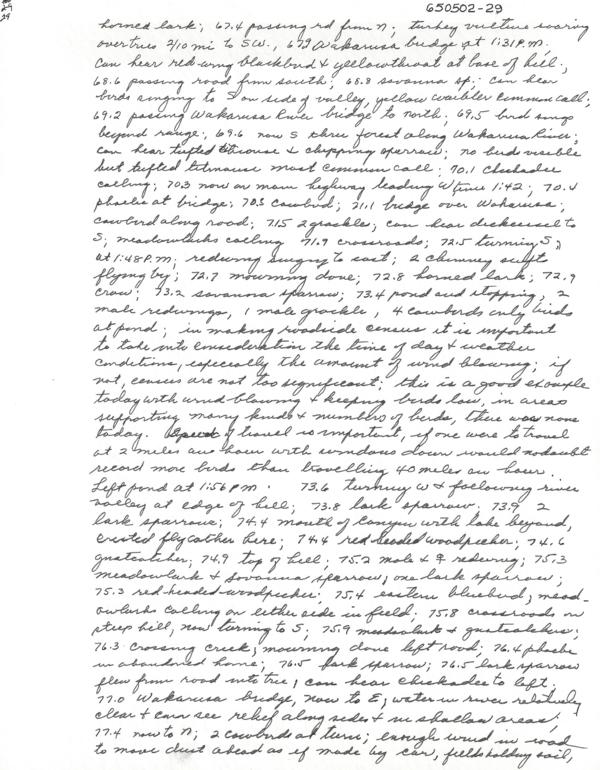 650502-29
29
horned lark; 67.4 passing rd from N; turkey vulture soaring
over trees 2/10 mi to SW., 67.9 Wakarusa bridge at 1:31 P.M.
Can hear red-wing blackbird & yellowthroat at base of hill;
68.6 passing road from south; 68.8 savanna sp.; can hear
birds singing to S on side of valley, yellow warbler common call;
69.2 passing Wakarusa River bridge to north; 69.5 bird songs
beyond range; 69.6 now S thru forest along Wakarusa River;
can hear tufted titmouse & chipping sparrow; no bird visible
but tufted titmouse most common call; 70.1 chickadee
calling; 70.3 now on main highway leading W time 1:42; 70.4
phoebe at bridge; 70.5 cowbird; 71.1 bridge over Wakarusa;
cowbird along road; 71.5 2 grackle; can hear dickcissel to
S; meadowlarks calling 71.9 crossroads; 72.5 turning S,
at 1:48 P.M; redwing singing to east; 2 chimney swifts
flying by; 72.7 mourning dove; 72.8 horned lark; 72.9
crow; 73.2 savanna sparrow; 73.4 pond and stopping, 2
male redwings, 1 male grackle, 4 cowbirds only birds
at pond; in making roadside census it is important
to take into consideration the time of day & weather
conditions, especially the amount of wind blowing; if
not, census are not too significant; this is a good example
today with wind blowing & keeping birds low, in areas
supporting many kinds & numbers of birds, there was none
today. Speed of travel is important, if one were to travel
at 2 miles an hour with windows down would no doubt
record more birds than travelling 40 miles an hour.
Left pond at 1:56 P.M. 73.6 turning W & following river
valley at edge of hill; 73.8 lark sparrow; 73.9 2
lark sparrows; 74.4 mouth of canyon with lake beyond,
crested flycatcher here; 74.4 red-headed woodpecker; 74.6
gnatcatcher; 74.9 top of hill; 75.2 male & ♀ redwing; 75.3
meadowlark & savanna sparrow, one lark sparrow;
75.3 red-headed-woodpecker; 75.4 eastern bluebird; mead-
owlarks calling on either side in field; 75.8 crossroads on
steep hill, now turning to S; 75.9 meadowlark & gnatcatchers;
76.3 crossing creek; mourning dove left road; 76.4 phoebe
in abandoned home; 76.5 lark sparrow; 76.5 lark sparrow
flew from road into tree; can hear chickadee to left;
77.0 Wakarusa bridge, now to E; water in river relatively
clear & can see relief along sides & in shallow areas;
77.4 now to N; 2 cowbirds at turn; enough wind in road
to move dust ahead as if made by car, fields holding soil,